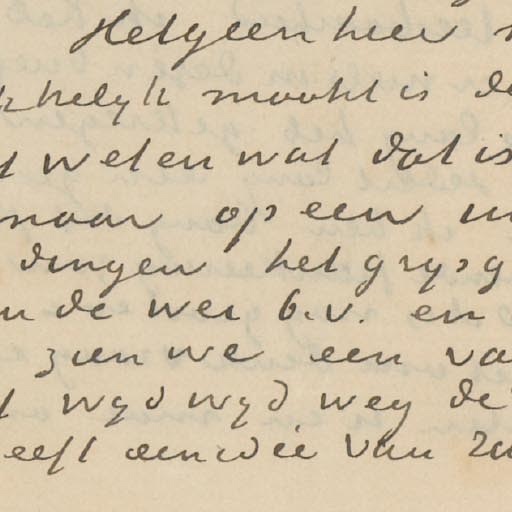 Hetgeen hier
khelyk maakt is de
t weten wat dat is
naar op een
dingen het grysg
n de wei b.v. en
zien we een va
t wyd wyd weg de
eeft een wei van